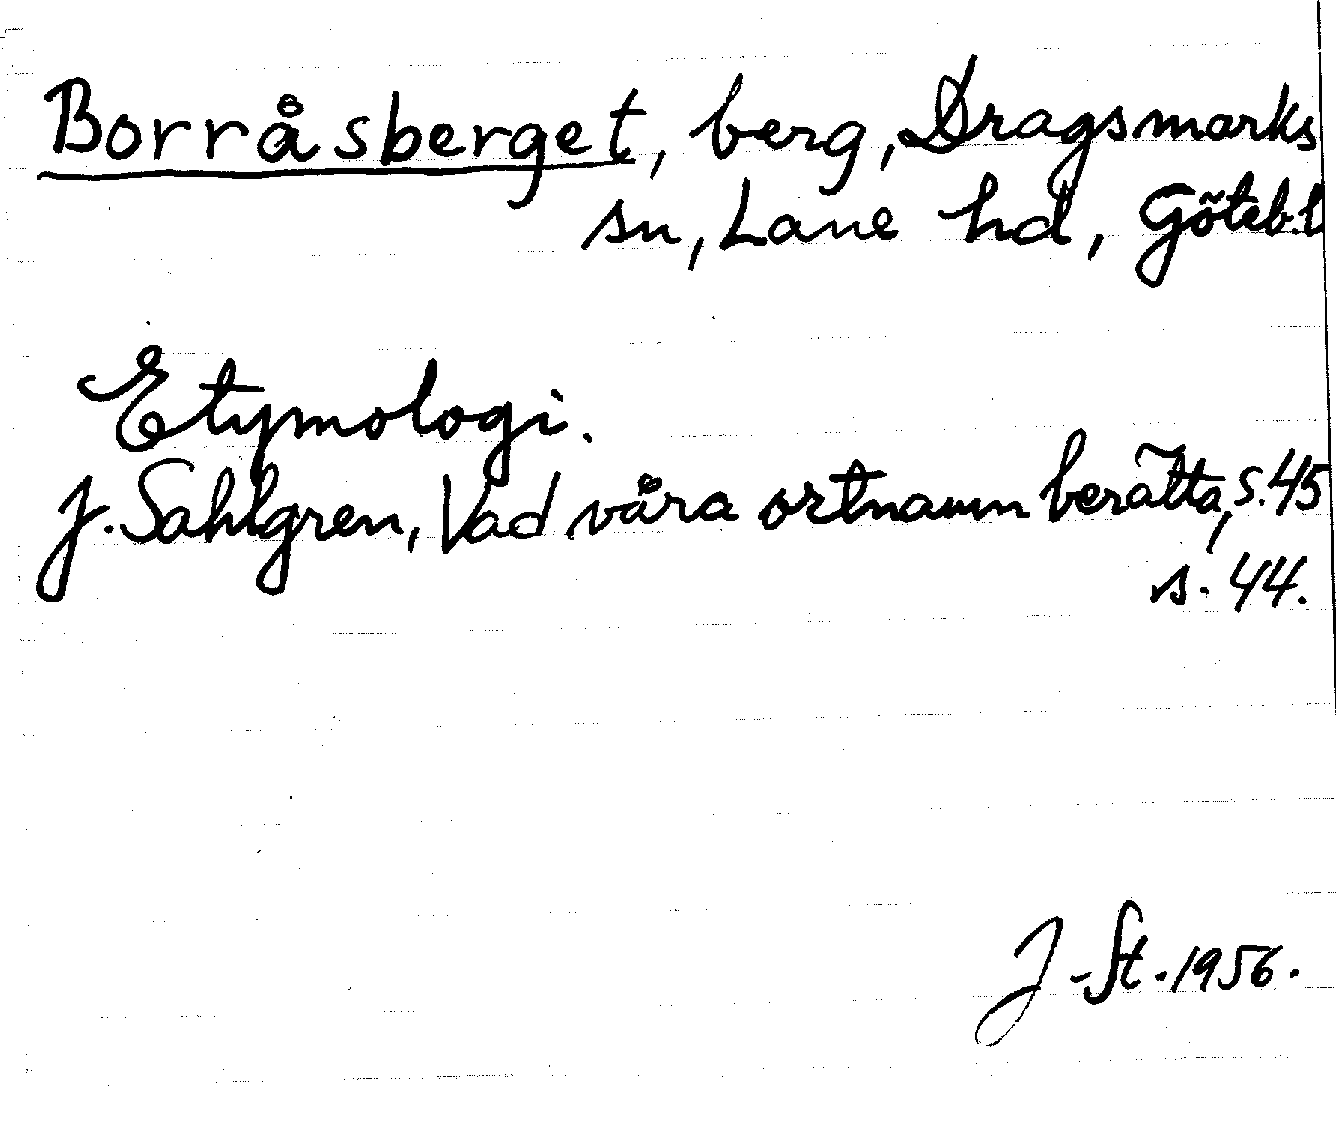 Borråsberget, berg, Dragsmarks
sn, Lane hd, Göteb.l
Etymologi.
J. Sahlgren, Vad våra ortnamn berätta, s. 45
s. 44.
J-St. 1956.